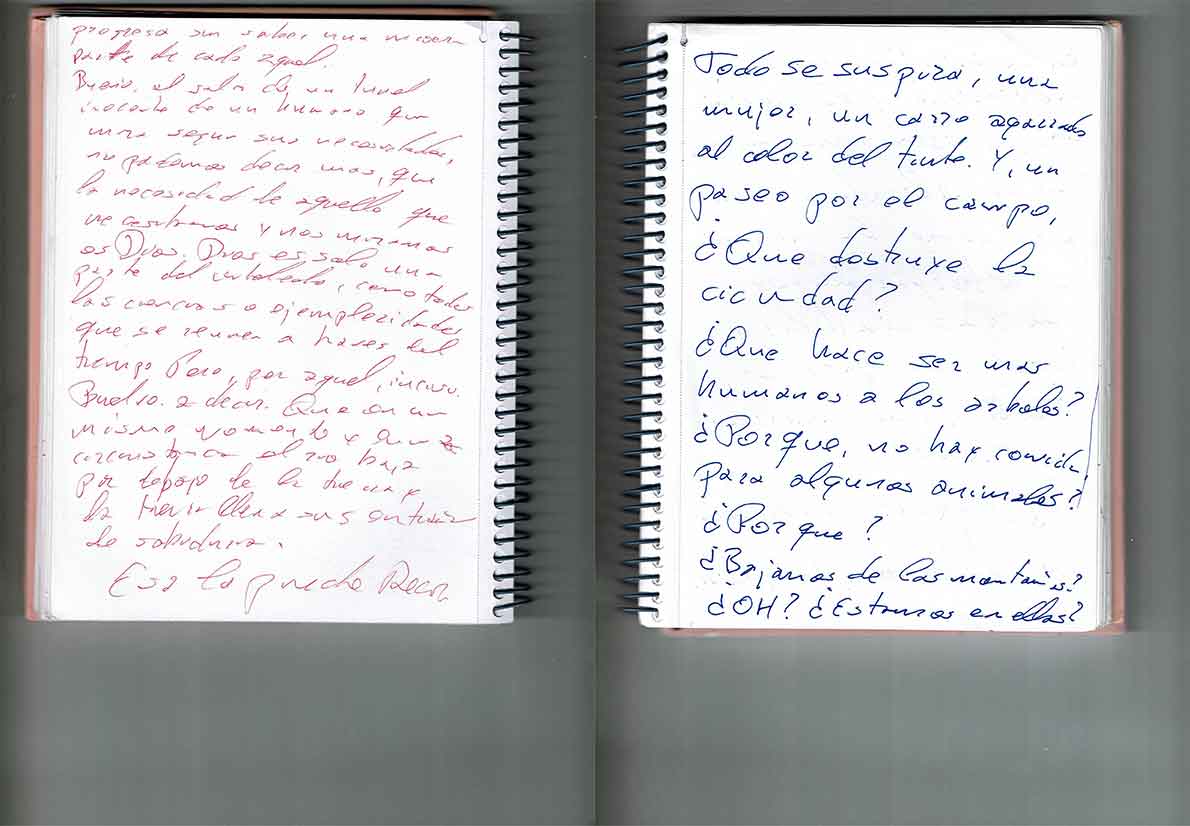 progresa sin saber, una mísera
parte de cada aquel.
Bueno, el salir de un tunel
inocente de un humano que
mira segun sus necesidades,
no podemos decir mas, que
la necesidad de aquello que
necesitamos y nos miramos
es Dios. Dios es solo una
parte del intelecto, como todas
las ciencias o ejemplezidades
que se reunen a traves del
tiempo Pero, por aquel, incuso.
Buelvo. a decir. Que en un
mismo momento y en
circunstancia el rio baja
por debajo de la tierra y
la tierra llena sus
de sabiduria.
Eso la puedo Decir
Todo se suspira, una
mujer, un carro agarrado
al color del tinte. Y, un
paseo por el campo,
¿Que destruye la
cicundad?
¿Que hace ser mas
humanos a los arboles?
¿Porque, no hay comida
para algunos animales?
¿Porque?
¿Bajamos de las montañas?
¿OH? ¿Estamos en ellas?